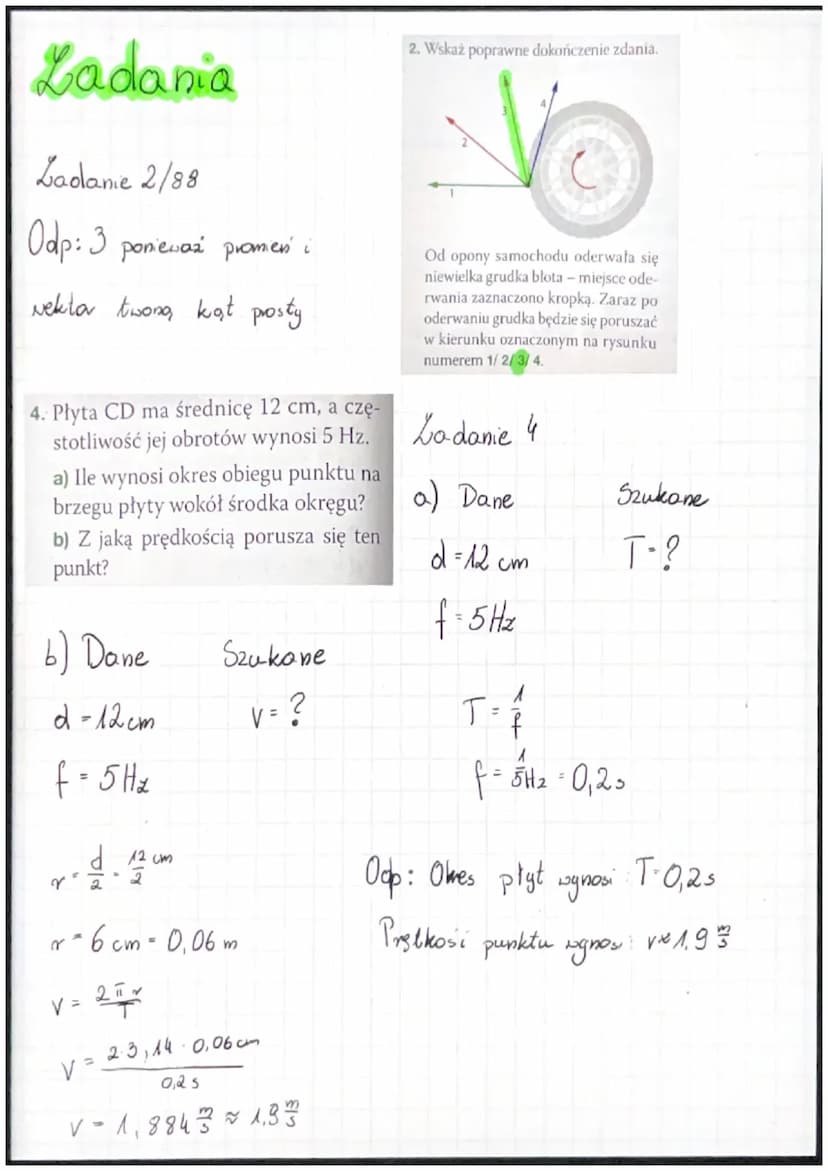 Zadania
2. Wskaż poprawne dokończenie zdania.
1
2
3
4
Od opony samochodu oderwała się
niewielka grudka błota – miejsce ode-
rwania zaznaczono kropką. Zaraz po
oderwaniu grudka będzie się poruszać
w kierunku oznaczonym na rysunku
numerem 1/ 2/ 3/ 4.
Zadanie 2/88
Odp: 3 ponieważ promień i
wektor tworzą kąt prosty
4. Płyta CD ma średnicę 12 cm, a czę-
stotliwość jej obrotów wynosi 5 Hz.
a) Ile wynosi okres obiegu punktu na
brzegu płyty wokół środka okręgu?
b) Z jaką prędkością porusza się ten
punkt?
Zadanie 4
a) Dane Szukane
d = 12 cm T = ?
f = 5 Hz
T = 1/f
f = 1/5Hz = 0,2 s
b) Dane Szukane
d = 12 cm V = ?
f = 5 Hz
r = d/2 = 12/2 cm
r = 6 cm = 0,06 m
V = 2πr/T
V = 2·3,14·0,06 cm / 0,2 s
V = 1,884 m/s ≈ 1,9 m/s
Odp: Okres płyt wynosi T = 0,2 s
Prędkość punktu wynosi: v≈1,9 m/s